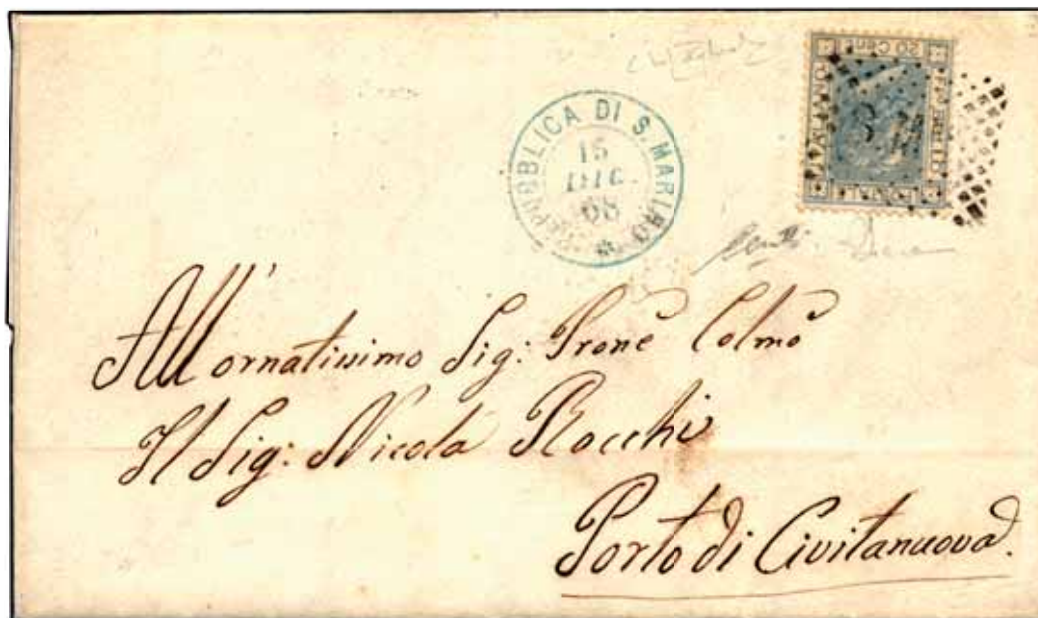 REPUBBLICA DI S. MARINO
15
DIC
68
20 Cent
All'ornatissimo Sig: Prone Colmo
Il Sig: Nicola Rocchi
Porto di Civitanuova.